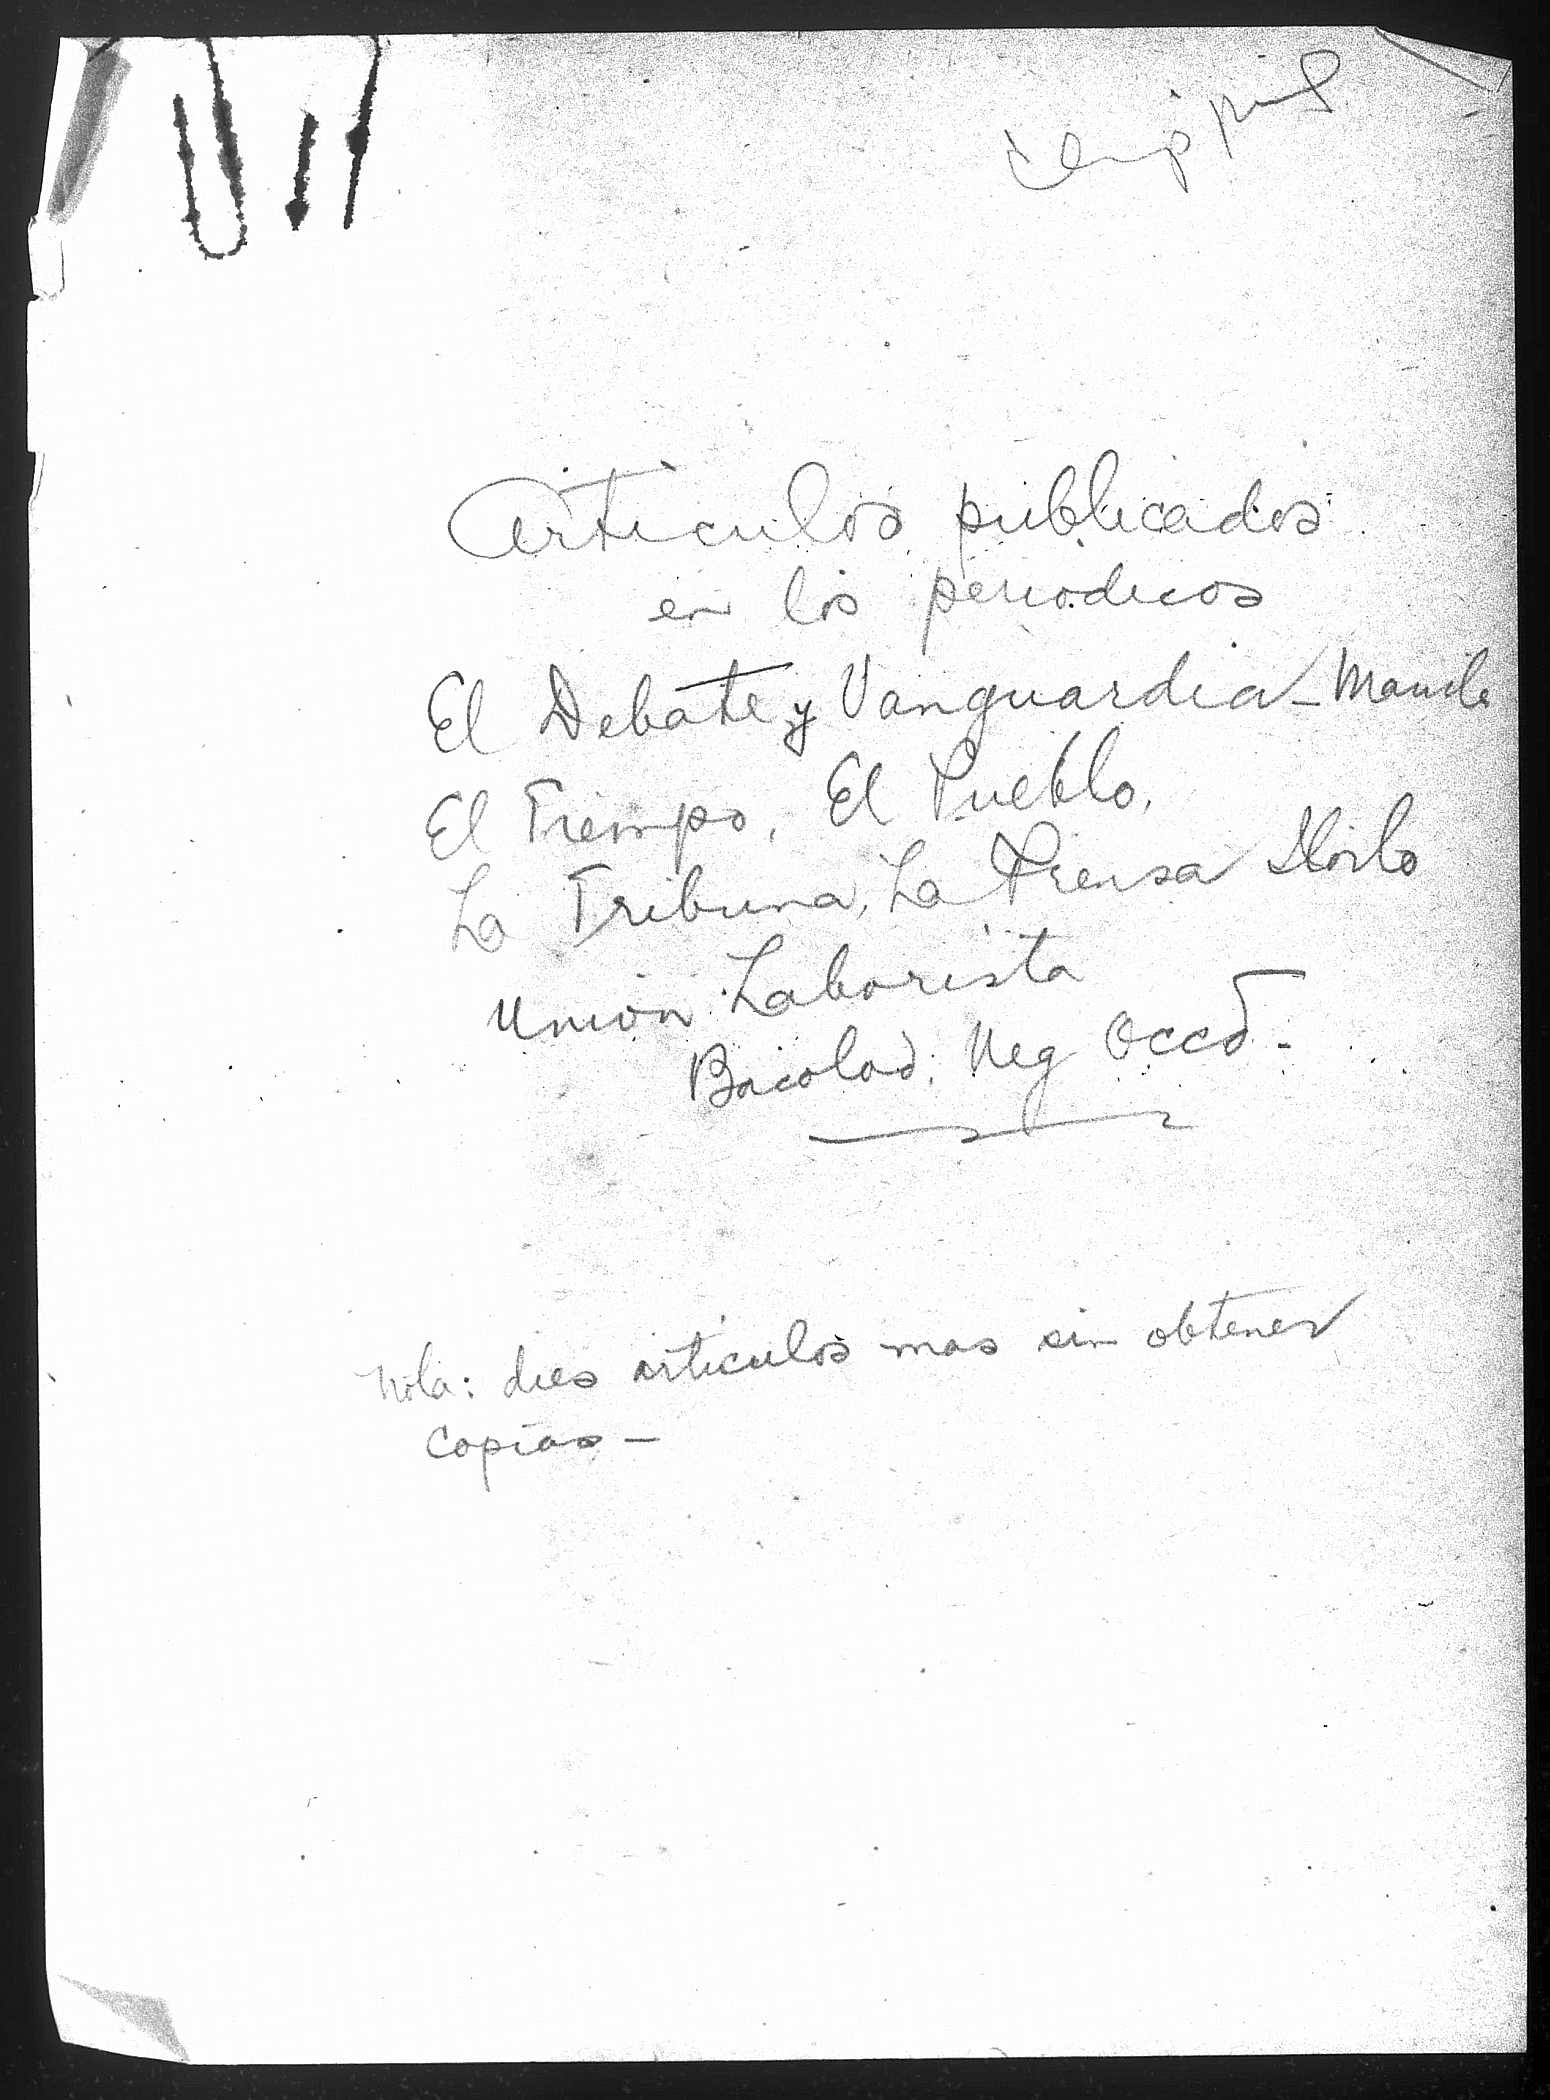 Articulos publicados
en los periodicos
El Debate y Vanguardia - Manila
El Tiempo, El Pueblo,
La Tribuna, La Prensa Iloilo
Union Laborista
Bacolod, Neg Occd -
Nota: dies articulos mas sin obtener
copias -